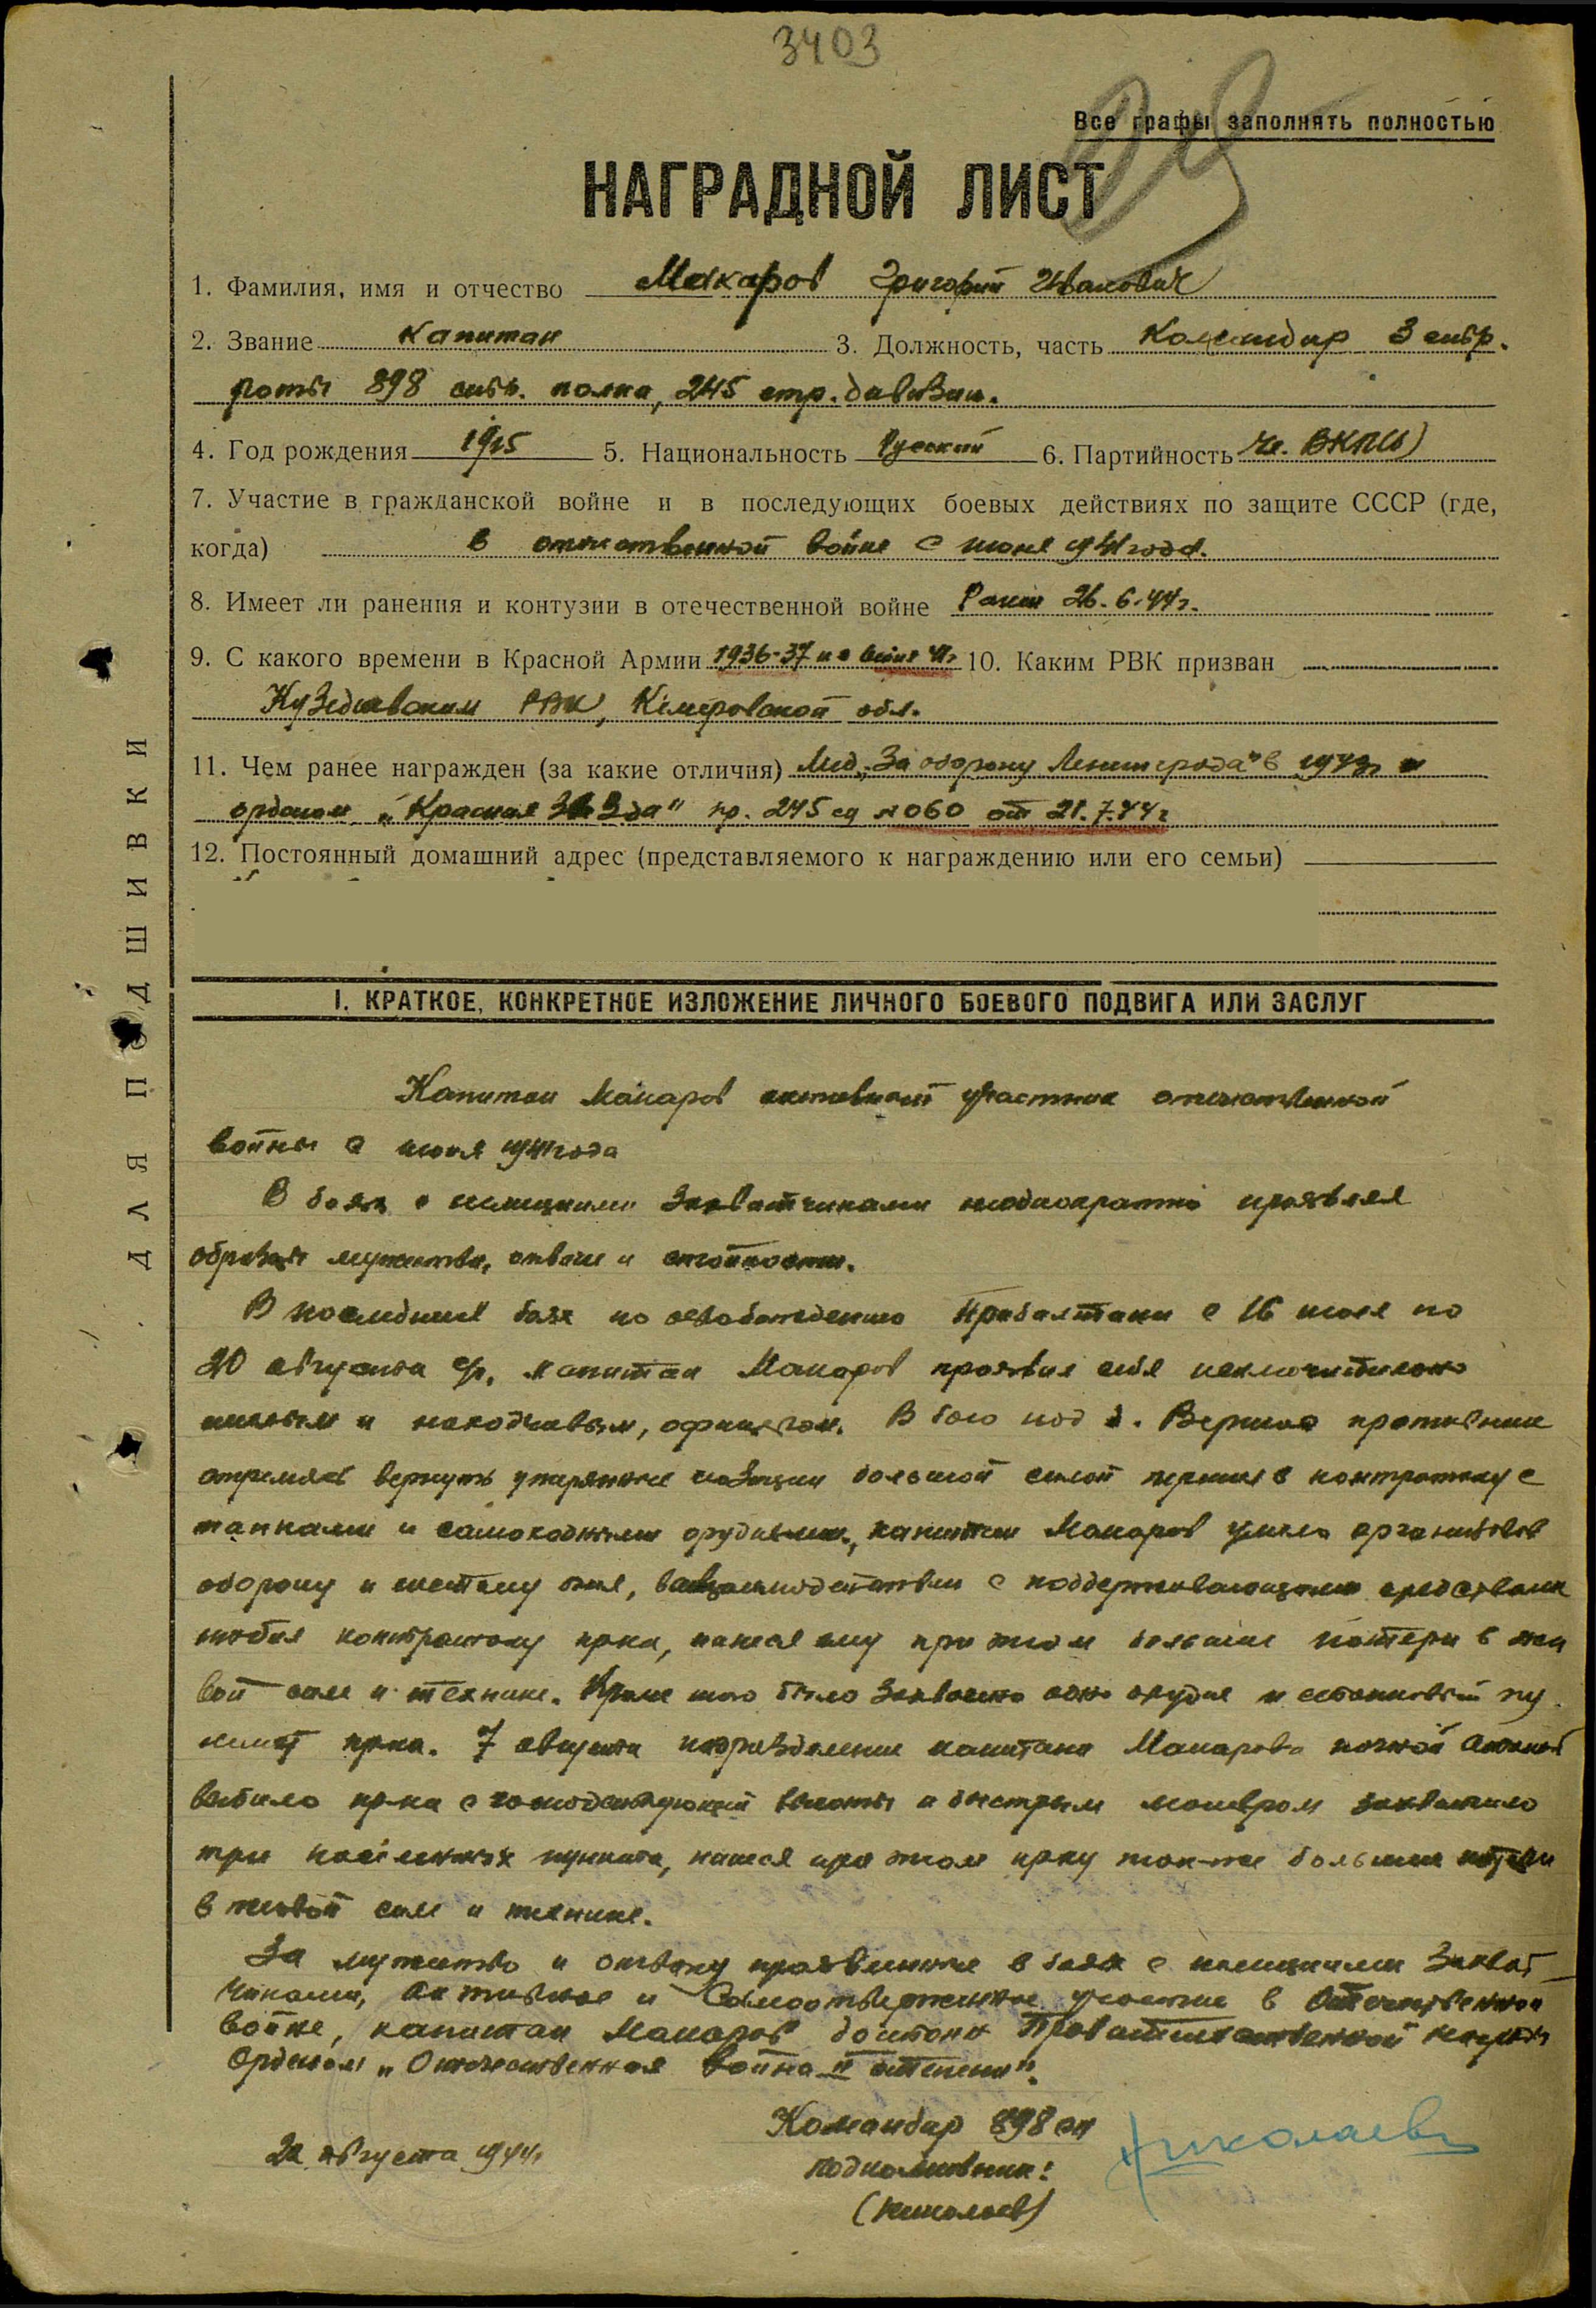 3403
Все графы заполнять полностью
НАГРАДНОЙ ЛИСТ
1. Фамилия, имя и отчество Макаров Григорий Иванович
2. Звание капитан 3. Должность, часть Командир 3 стр.
роты 898 стр. полка, 245 стр. дивизии.
4. Год рождения 1915 5. Национальность Русский 6. Партийность чл. ВКП(б)
7. Участие в гражданской войне и в последующих боевых действиях по защите СССР (где,
когда) в отечественной войне с июля 1941 года.
8. Имеет ли ранения и контузии в отечественной войне Ранен 26.6.44 г.
9. С какого времени в Красной Армии 1936-37 и с июля 41 г 10. Каким РВК призван
РВК, Кемеровской обл.
11. Чем ранее награжден (за какие отличия) Мед. „За оборону Ленинграда" в 1943г и
орденом „Красная Звезда" пр. 245 сд №060 от 21.7.44 г
12. Постоянный домашний адрес (представляемого к награждению или его семьи)
I. КРАТКОЕ, КОНКРЕТНОЕ ИЗЛОЖЕНИЕ ЛИЧНОГО БОЕВОГО ПОДВИГА ИЛИ ЗАСЛУГ
Капитан Макаров активный участник отечественной
войны с июля 1941 года
В боях с немецкими захватчиками неоднократно проявлял
образцы мужества, отваги и стойкости.
В последних боях по освобождению Прибалтики с 16 июля по
20 августа с/г. капитан Макаров проявил себя исключительно
смелым и находчивым, офицером. В бою под д. противник
стремясь вернуть утерянные позиции большой силой перешел в контратаку с
танками и самоходными орудиями, капитан Макаров умело организовав
оборону и систему огня, взаимодействии с поддерживающими средствами
отбил контратаку пр-ка, нанеся ему при этом большие потери в жи
вой силе и технике. Кроме того было захвачено одно орудие и станковый пу
лемет пр-ка. 7 августа подразделение капитана Макарова ночной атакой
выбило пр-ка с господствующей высоты и быстрым маневром захватило
три населенных пункта, нанеся при этом пр-ку так-же большие потери
в живой силе и технике.
За мужество и отвагу проявленные в боях с немецкими захват-
чиками, активное и самоотверженное участие в Отечественной
войне, капитан Макаров достоин Правительственной награды
орденом „Отечественная война II степени".
Командир 898 сп
22 августа 1944г. подполковник: Николаев
(Николаев)
ДЛЯ ПОДШИВКИ